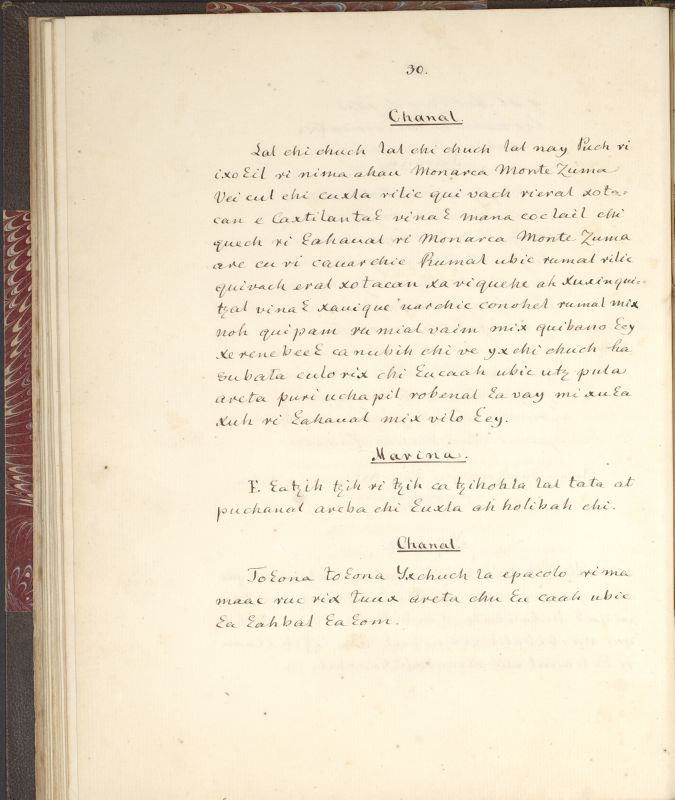 30.
Chanal.
Lal chi chuch lal chi chuch lal nay Puch ri
ixoƐil ri nima ahau Monarca Monte Zuma
Vei cul chi cuxla rilic qui vach rieral xota-
can e CaxtilantaƐ vinaƐ mana coclail chi
quech ri Ɛahaual ri Monarca Monte Zuma
are cu ri cauarchic Rumal ubic rumal rilic
quivach eral xotacan xaviquehe ah xuxinqui-
tȥal vinaƐ xauique uarchic conohel rumal mix
noh quipam rumial vaim mix quibano Ɛey
xe rene beeƐ canubih chi ve yx chi chuch ha
subata culo rix chi Ɛucaah ubic utȥ pula
areta puri uchapil robenal Ɛa vay mi xuƐa
xuh ri Ɛahaual mix vilo Ɛey.
Marina.
F. Ɛatȥih tȥih ri tȥih ca tȥihohla lal tata at
puchanal areba chi Ɛuxla ah holibah chi.
Chanal
ToƐona toƐona Yxchuch la epacolo rima
maac ruc rix tuux areta chu Ɛu caah ubic
Ɛa Ɛahbal Ɛa Ɛom.